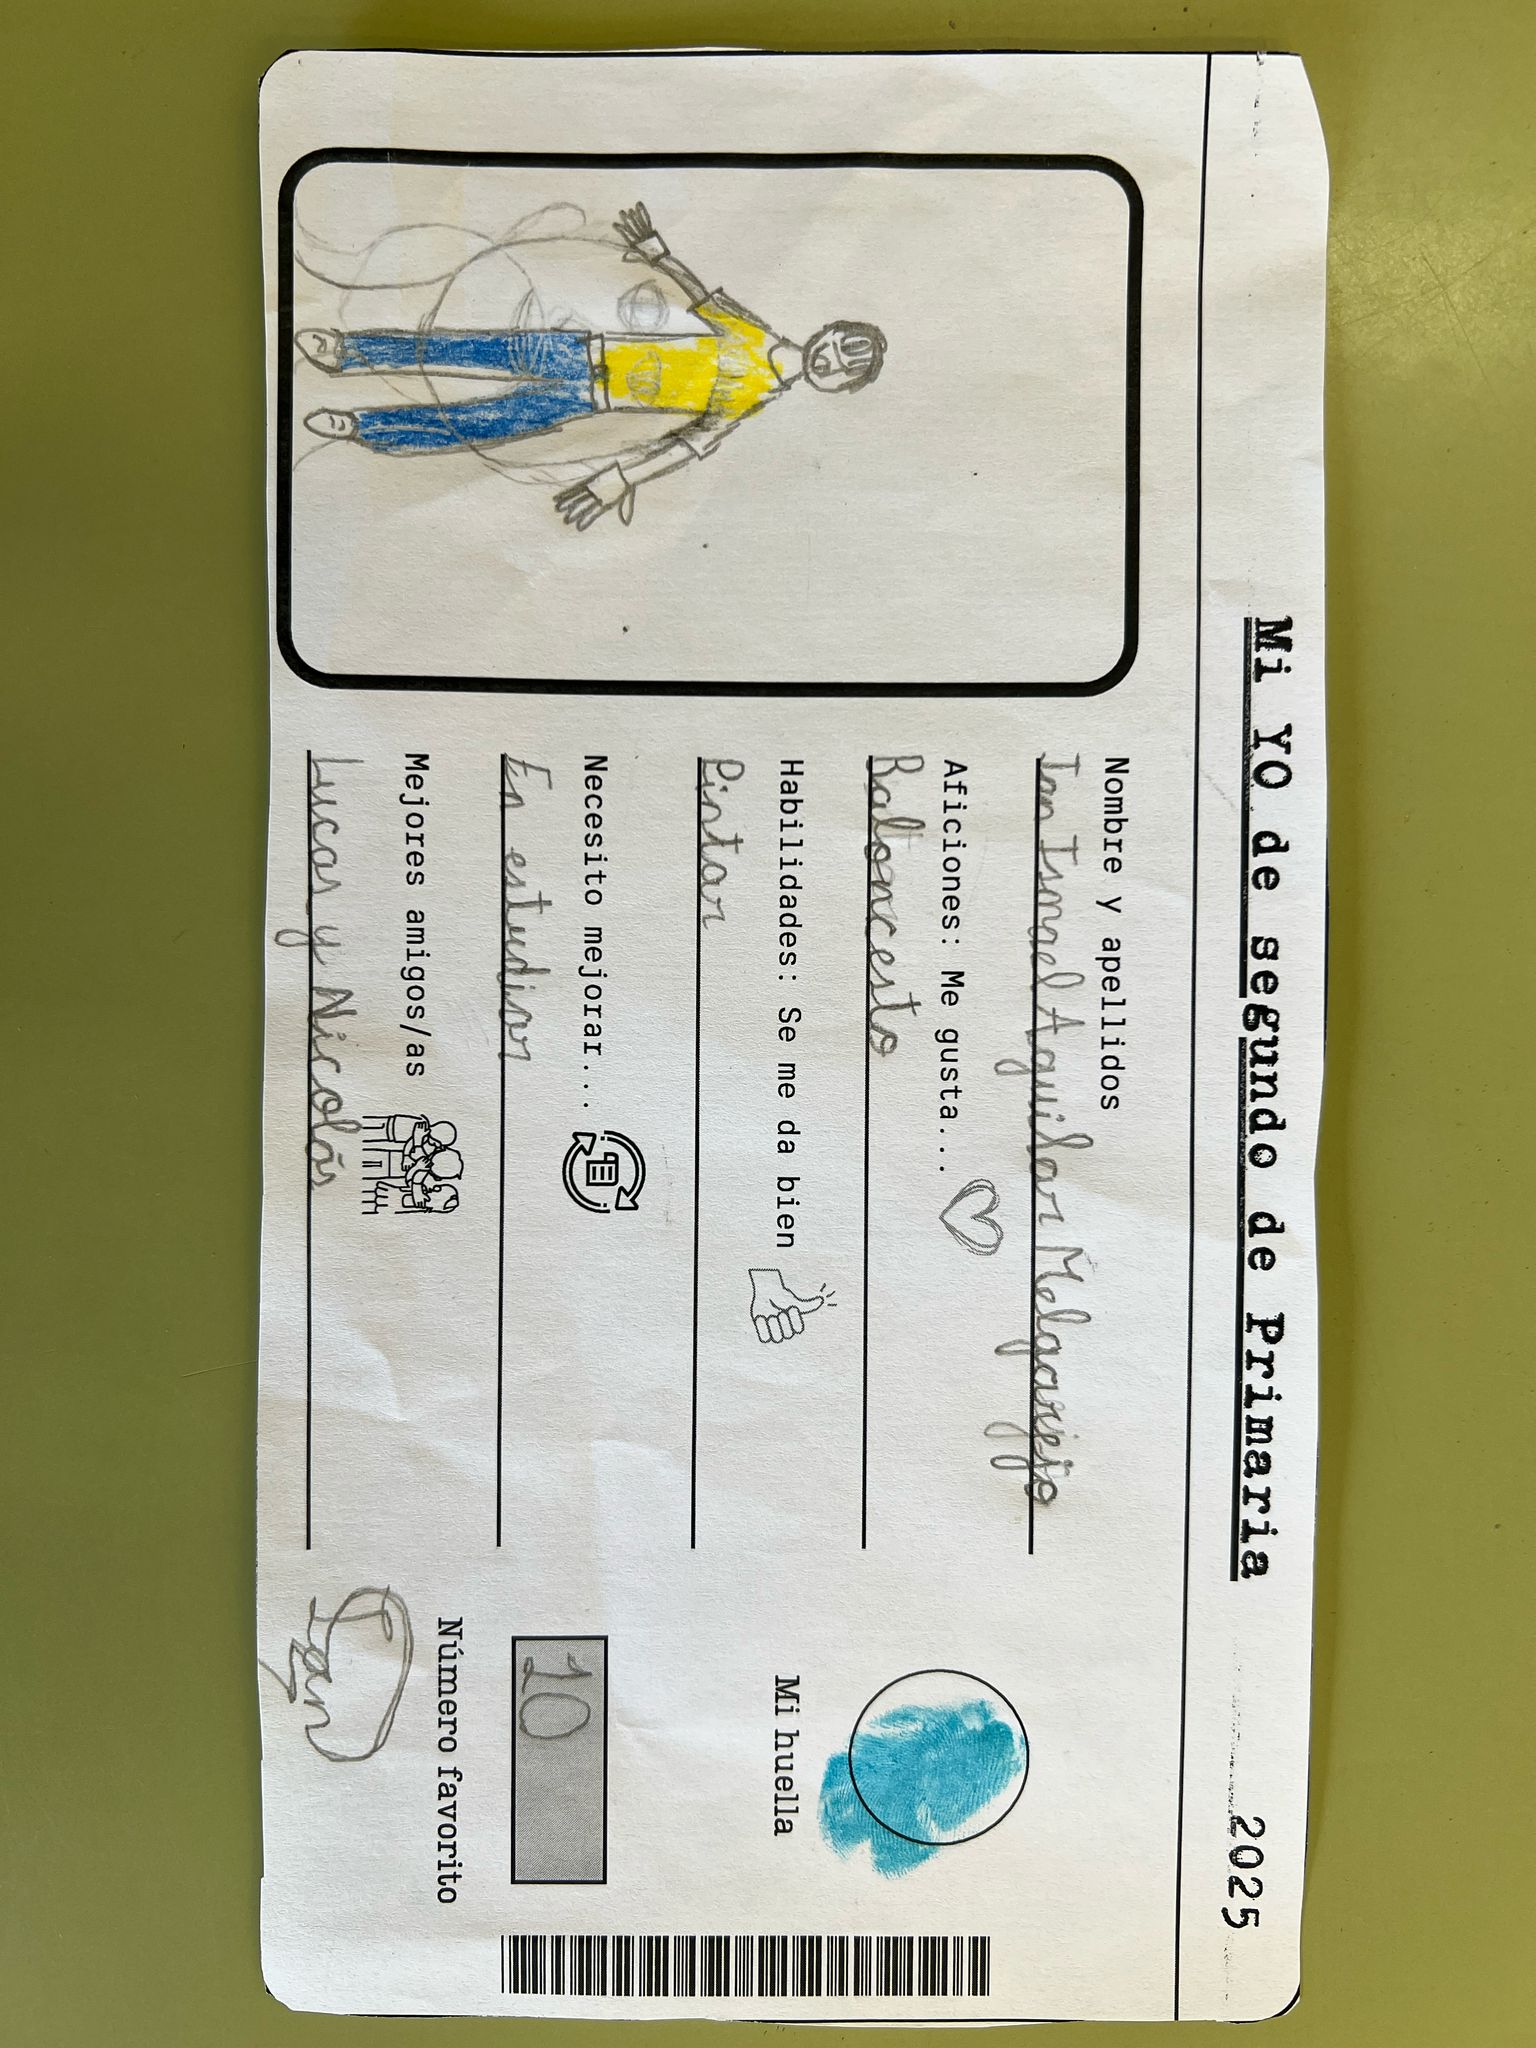 Mi YO de segundo de Primaria
2025
Nombre y apellidos
Ian Ismael Aguilar Melgarejo
Aficiones: Me gusta...
Baloncesto
Habilidades: Se me da bien
Pintar
Necesito mejorar...
En estudiar
Mejores amigos/as
Lucas y Nicolás
Mi huella
10
Número favorito
Ian